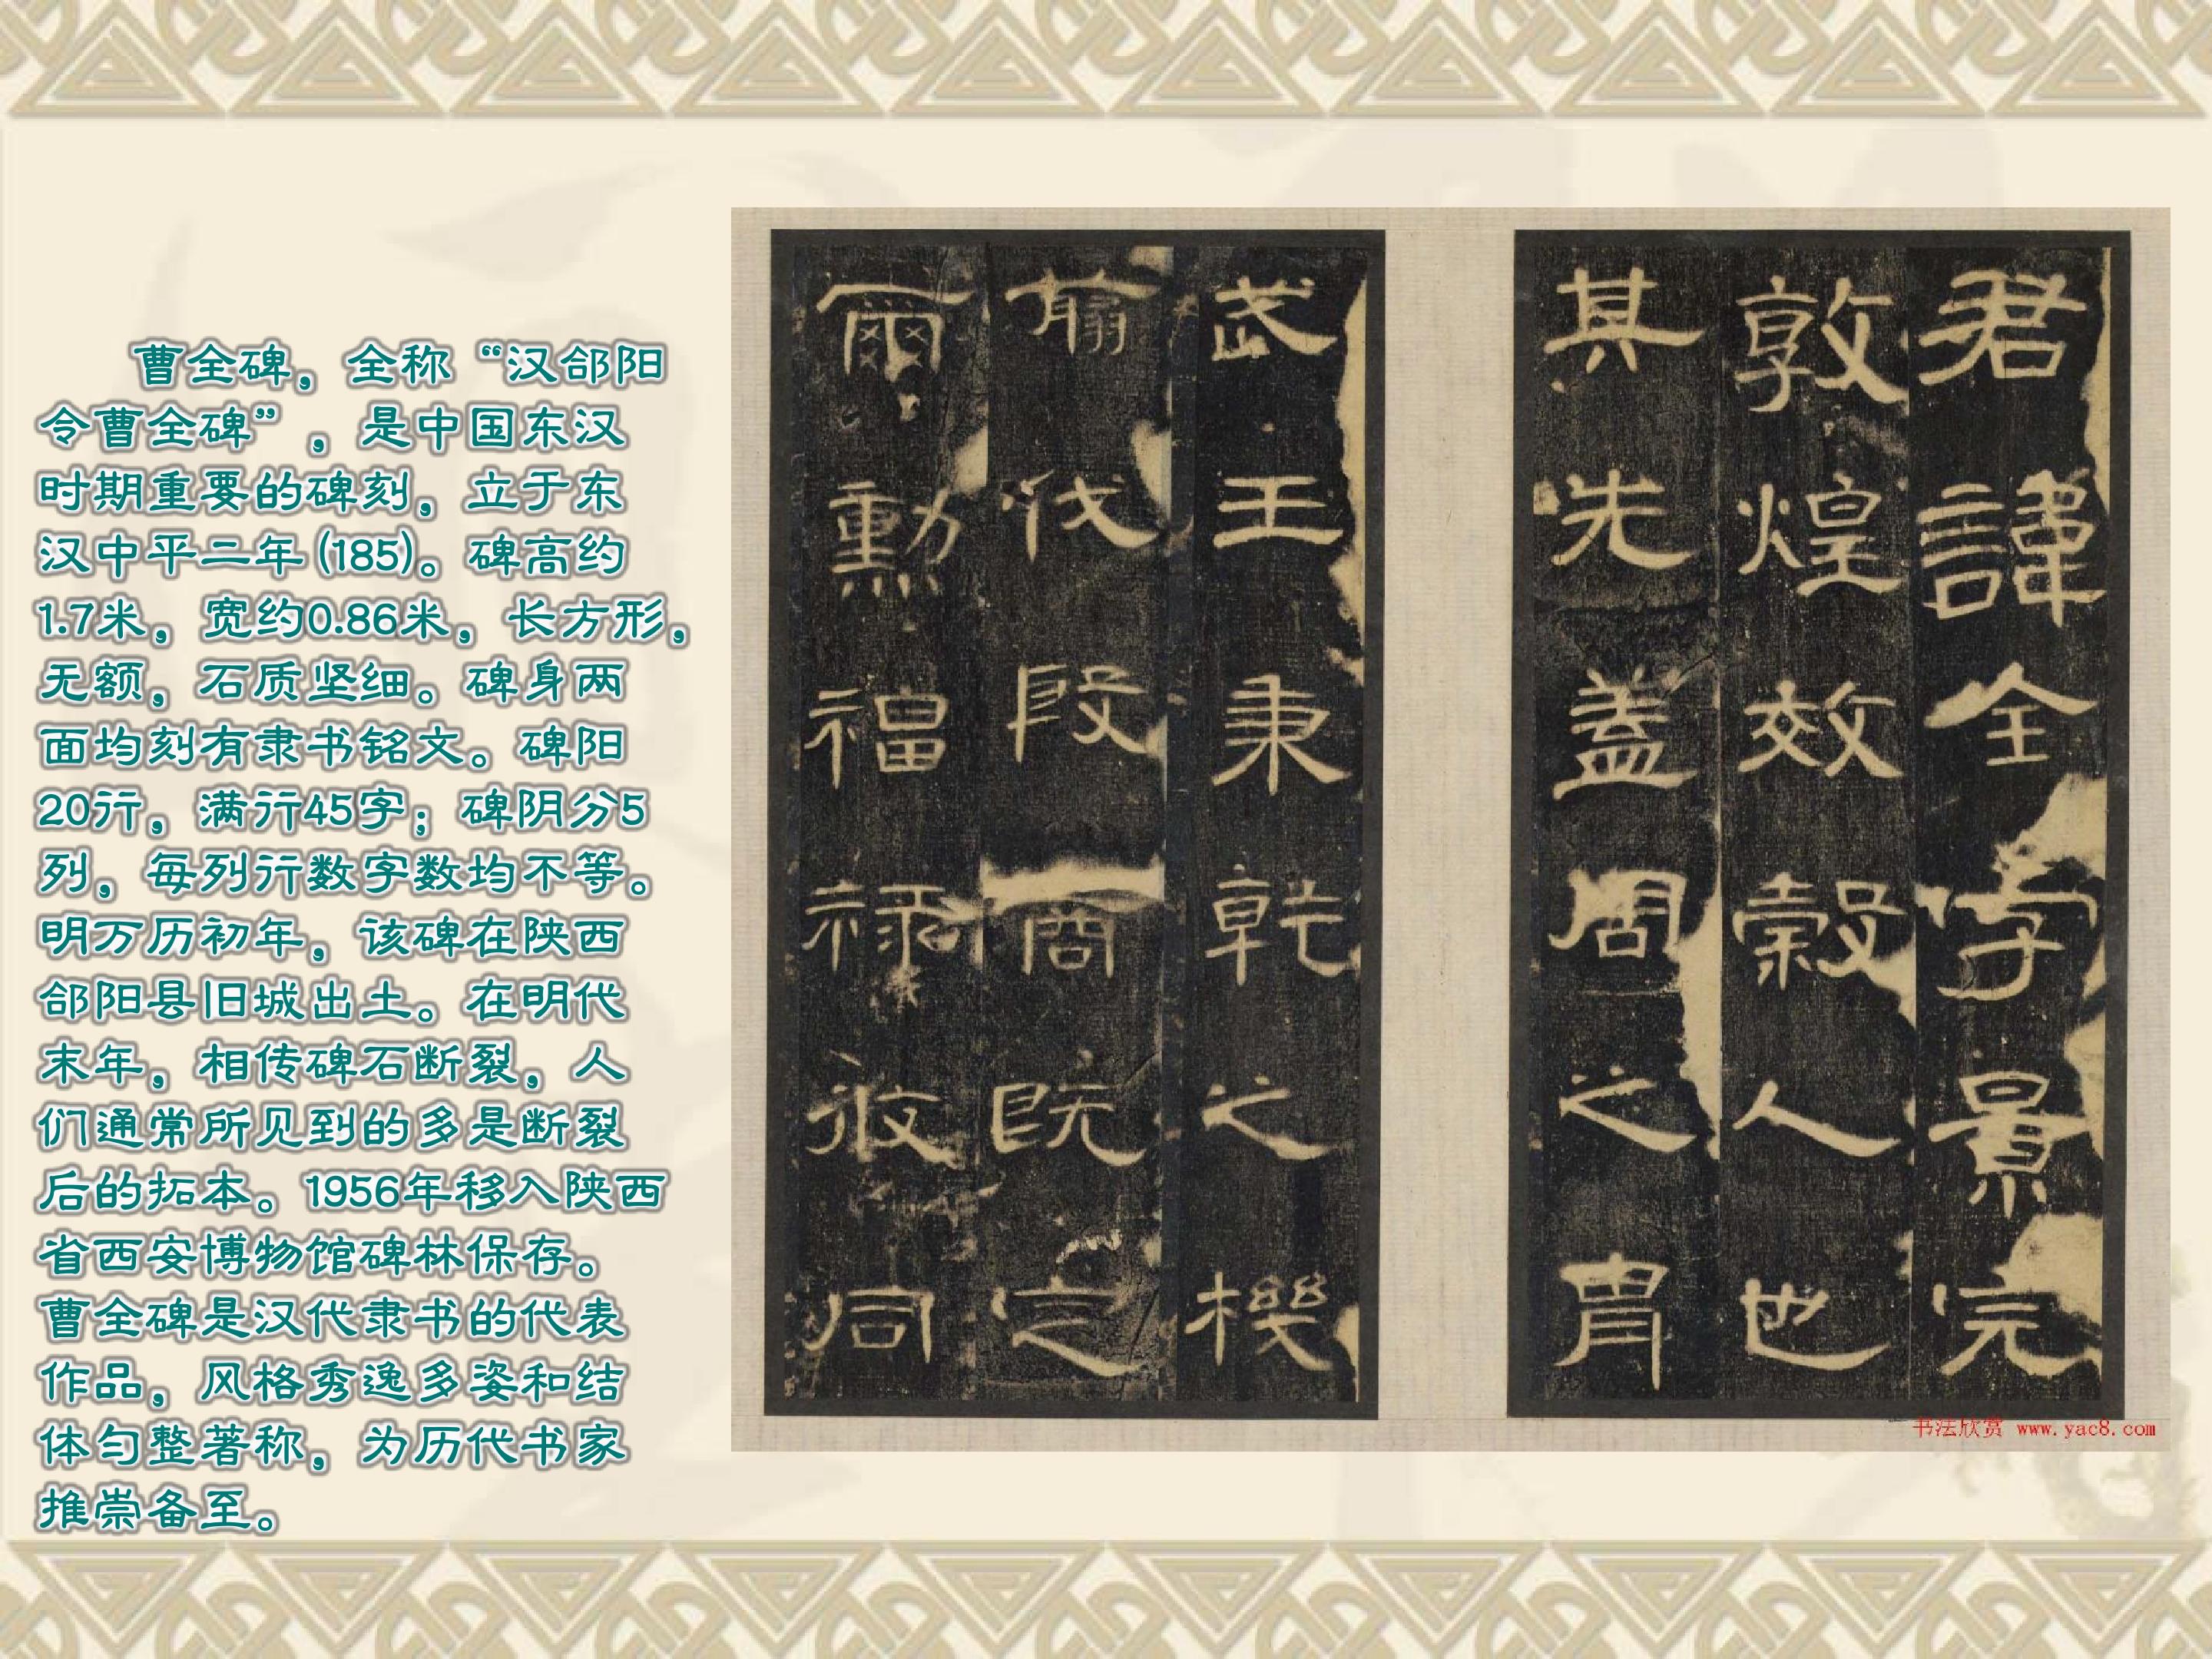 曹全碑，全称“汉郃阳
令曹全碑”，是中国东汉
时期重要的碑刻，立于东
汉中平二年(185)。碑高约
1.7米，宽约0.86米，长方形，
无额，石质坚细。碑身两
面均刻有隶书铭文。碑阳
20行，满行45字；碑阴分5
列，每列行数字数均不等。
明万历初年，该碑在陕西
郃阳县旧城出土。在明代
末年，相传碑石断裂，人
们通常所见到的多是断裂
后的拓本。1956年移入陕西
省西安博物馆碑林保存。
曹全碑是汉代隶书的代表
作品，风格秀逸多姿和结
体匀整著称，为历代书家
推崇备至。
君諱全字景完
敦煌效穀人也
其先盖周之胄
武王秉乾之機
翦伐殷商既定
爾勳福祿攸同
书法欣赏 www.yac8.com